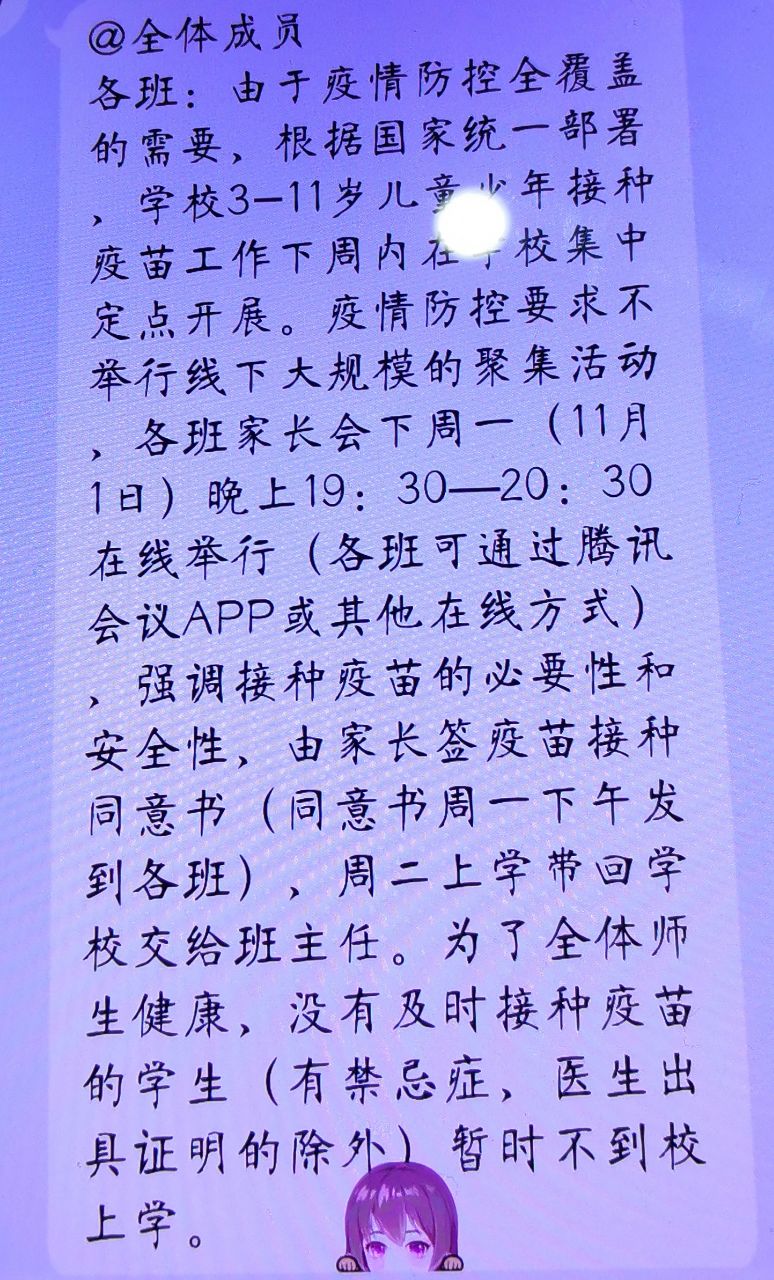 @全体成员
各班：由于疫情防控全覆盖
的需要，根据国家统一部署
，学校3—11岁儿童少年接种
疫苗工作下周内在学校集中
定点开展。疫情防控要求不
举行线下大规模的聚集活动
，各班家长会下周一（11月
1日）晚上19：30—20：30
在线举行（各班可通过腾讯
会议APP或其他在线方式）
，强调接种疫苗的必要性和
安全性，由家长签疫苗接种
同意书（同意书周一下午发
到各班），周二上学带回学
校交给班主任。为了全体师
生健康，没有及时接种疫苗
的学生（有禁忌症，医生出
具证明的除外）暂时不到校
上学。